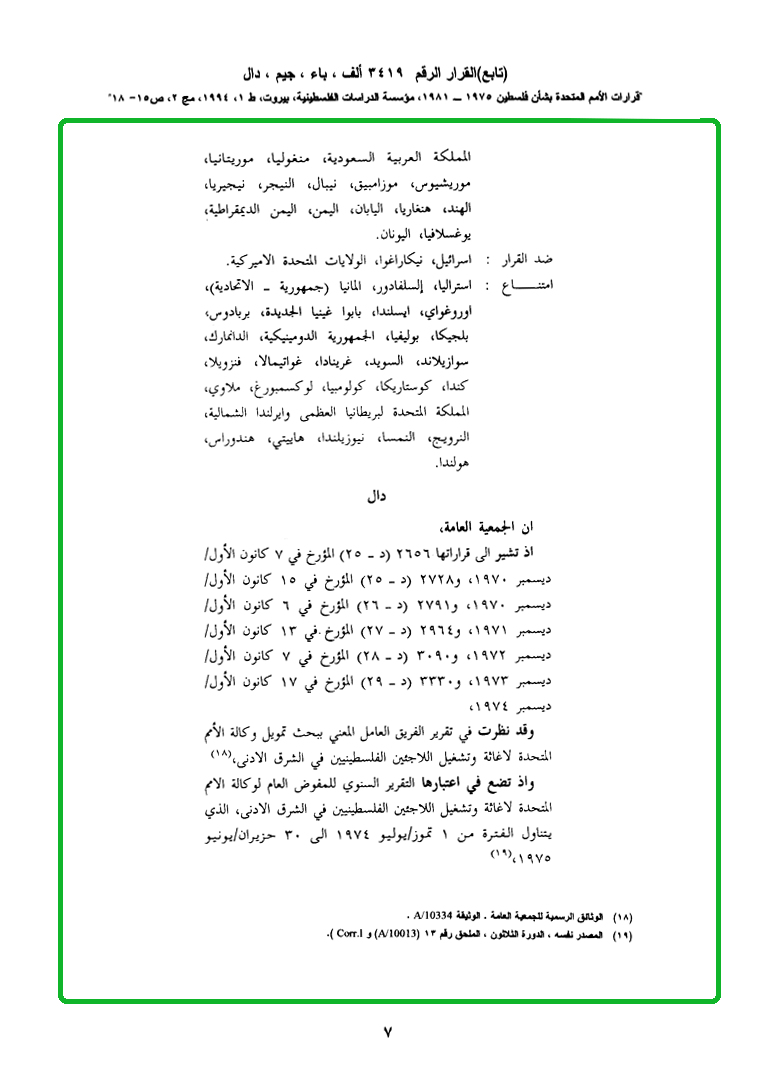 (تابع)القرار الرقم ٣٤١٩ ألف ، باء ، جيم ، دال
"قرارات الأمم المتحدة بشأن فلسطين ١٩٧٥ ــ ١٩٨١، مؤسسة الدراسات الفلسطينية، بيروت، ط ١، ١٩٩٤، مج ٢، ص١٥- ١٨"
المملكة العربية السعودية، منغوليا، موريتانيا،
موريشيوس، موزامبيق، نيبال، النيجر، نيجيريا،
الهند، هنغاريا، اليابان، اليمن، اليمن الديمقراطية،
يوغسلافيا، اليونان.
ضد القرار : اسرائيل، نيكاراغوا، الولايات المتحدة الاميركية.
امتنـــــاع : استراليا، إلسلفادور، المانيا (جمهورية ـ الاتحادية)،
اوروغواي، ايسلندا، بابوا غينيا الجديدة، بربادوس،
بلجيكا، بوليفيا، الجمهورية الدومينيكية، الدانمارك،
سوازيلاند، السويد، غرينادا، غواتيمالا، فنزويلا،
كندا، كوستاريكا، كولومبيا، لوكسمبورغ، ملاوي،
المملكة المتحدة لبريطانيا العظمى وايرلندا الشمالية،
النرويج، النمسا، نيوزيلندا، هاييتي، هندوراس،
هولندا.
دال
ان الجمعية العامة،
اذ تشير الى قراراتها ٢٦٥٦ (د ـ ٢٥) المؤرخ في ٧ كانون الأول/
ديسمبر ١٩٧٠، و٢٧٢٨ (د ـ ٢٥) المؤرخ في ١٥ كانون الأول/
ديسمبر ١٩٧٠، و٢٧٩١ (د ـ ٢٦) المؤرخ في ٦ كانون الأول/
ديسمبر ١٩٧١، و٢٩٦٤ (د ـ ٢٧) المؤرخ في ١٣ كانون الأول/
ديسمبر ١٩٧٢، و٣٠٩٠ (د ـ ٢٨) المؤرخ في ٧ كانون الأول/
ديسمبر ١٩٧٣، و٣٣٣٠ (د ـ ٢٩) المؤرخ في ١٧ كانون الأول/
ديسمبر ١٩٧٤،
وقد نظرت في تقرير الفريق العامل المعني ببحث تمويل وكالة الأمم
المتحدة لاغاثة وتشغيل اللاجئين الفلسطينيين في الشرق الادنى،(١٨)
واذ تضع في اعتبارها التقرير السنوي للمفوض العام لوكالة الامم
المتحدة لاغاثة وتشغيل اللاجئين الفلسطينيين في الشرق الادنى، الذي
يتناول الفترة من ١ تموز/يوليو ١٩٧٤ الى ٣٠ حزيران/يونيو
١٩٧٥،(١٩)
(١٨) الوثائق الرسمية للجمعية العامة . الوثيقة A/10334 .
(١٩) المصدر نفسه ، الدورة الثلاثون ، الملحق رقم ١٣ (A/10013) و Corr.l ).
٧